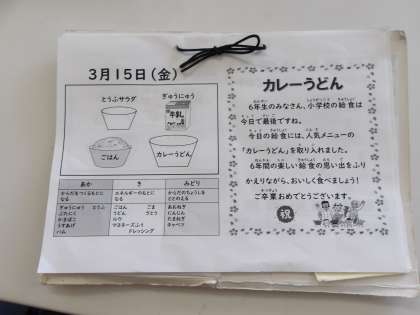 3月15日(金)
とうふサラダ
ぎゅうにゅう
牛乳
ごはん
カレーうどん
あか
き
みどり
からだをつくるもとになる
エネルギーのもとになる
からだのちょうしをととのえる
ぎゅうにゅう とうふ
ぶたにく
かまぼこ
うすあげ
ハム
ごはん ごま
うどん さとう
ルウ
マヨネーズふう
ドレッシング
あおねぎ
にんじん
たまねぎ
キャベツ
カレーうどん
6年生のみなさん、小学校の給食は
今日で最後ですね。
今日の給食には、人気メニューの
「カレーうどん」を取り入れました。
6年間の楽しい給食の思い出をふり
かえりながら、おいしく食べましょう!
ご卒業おめでとうございます。
祝